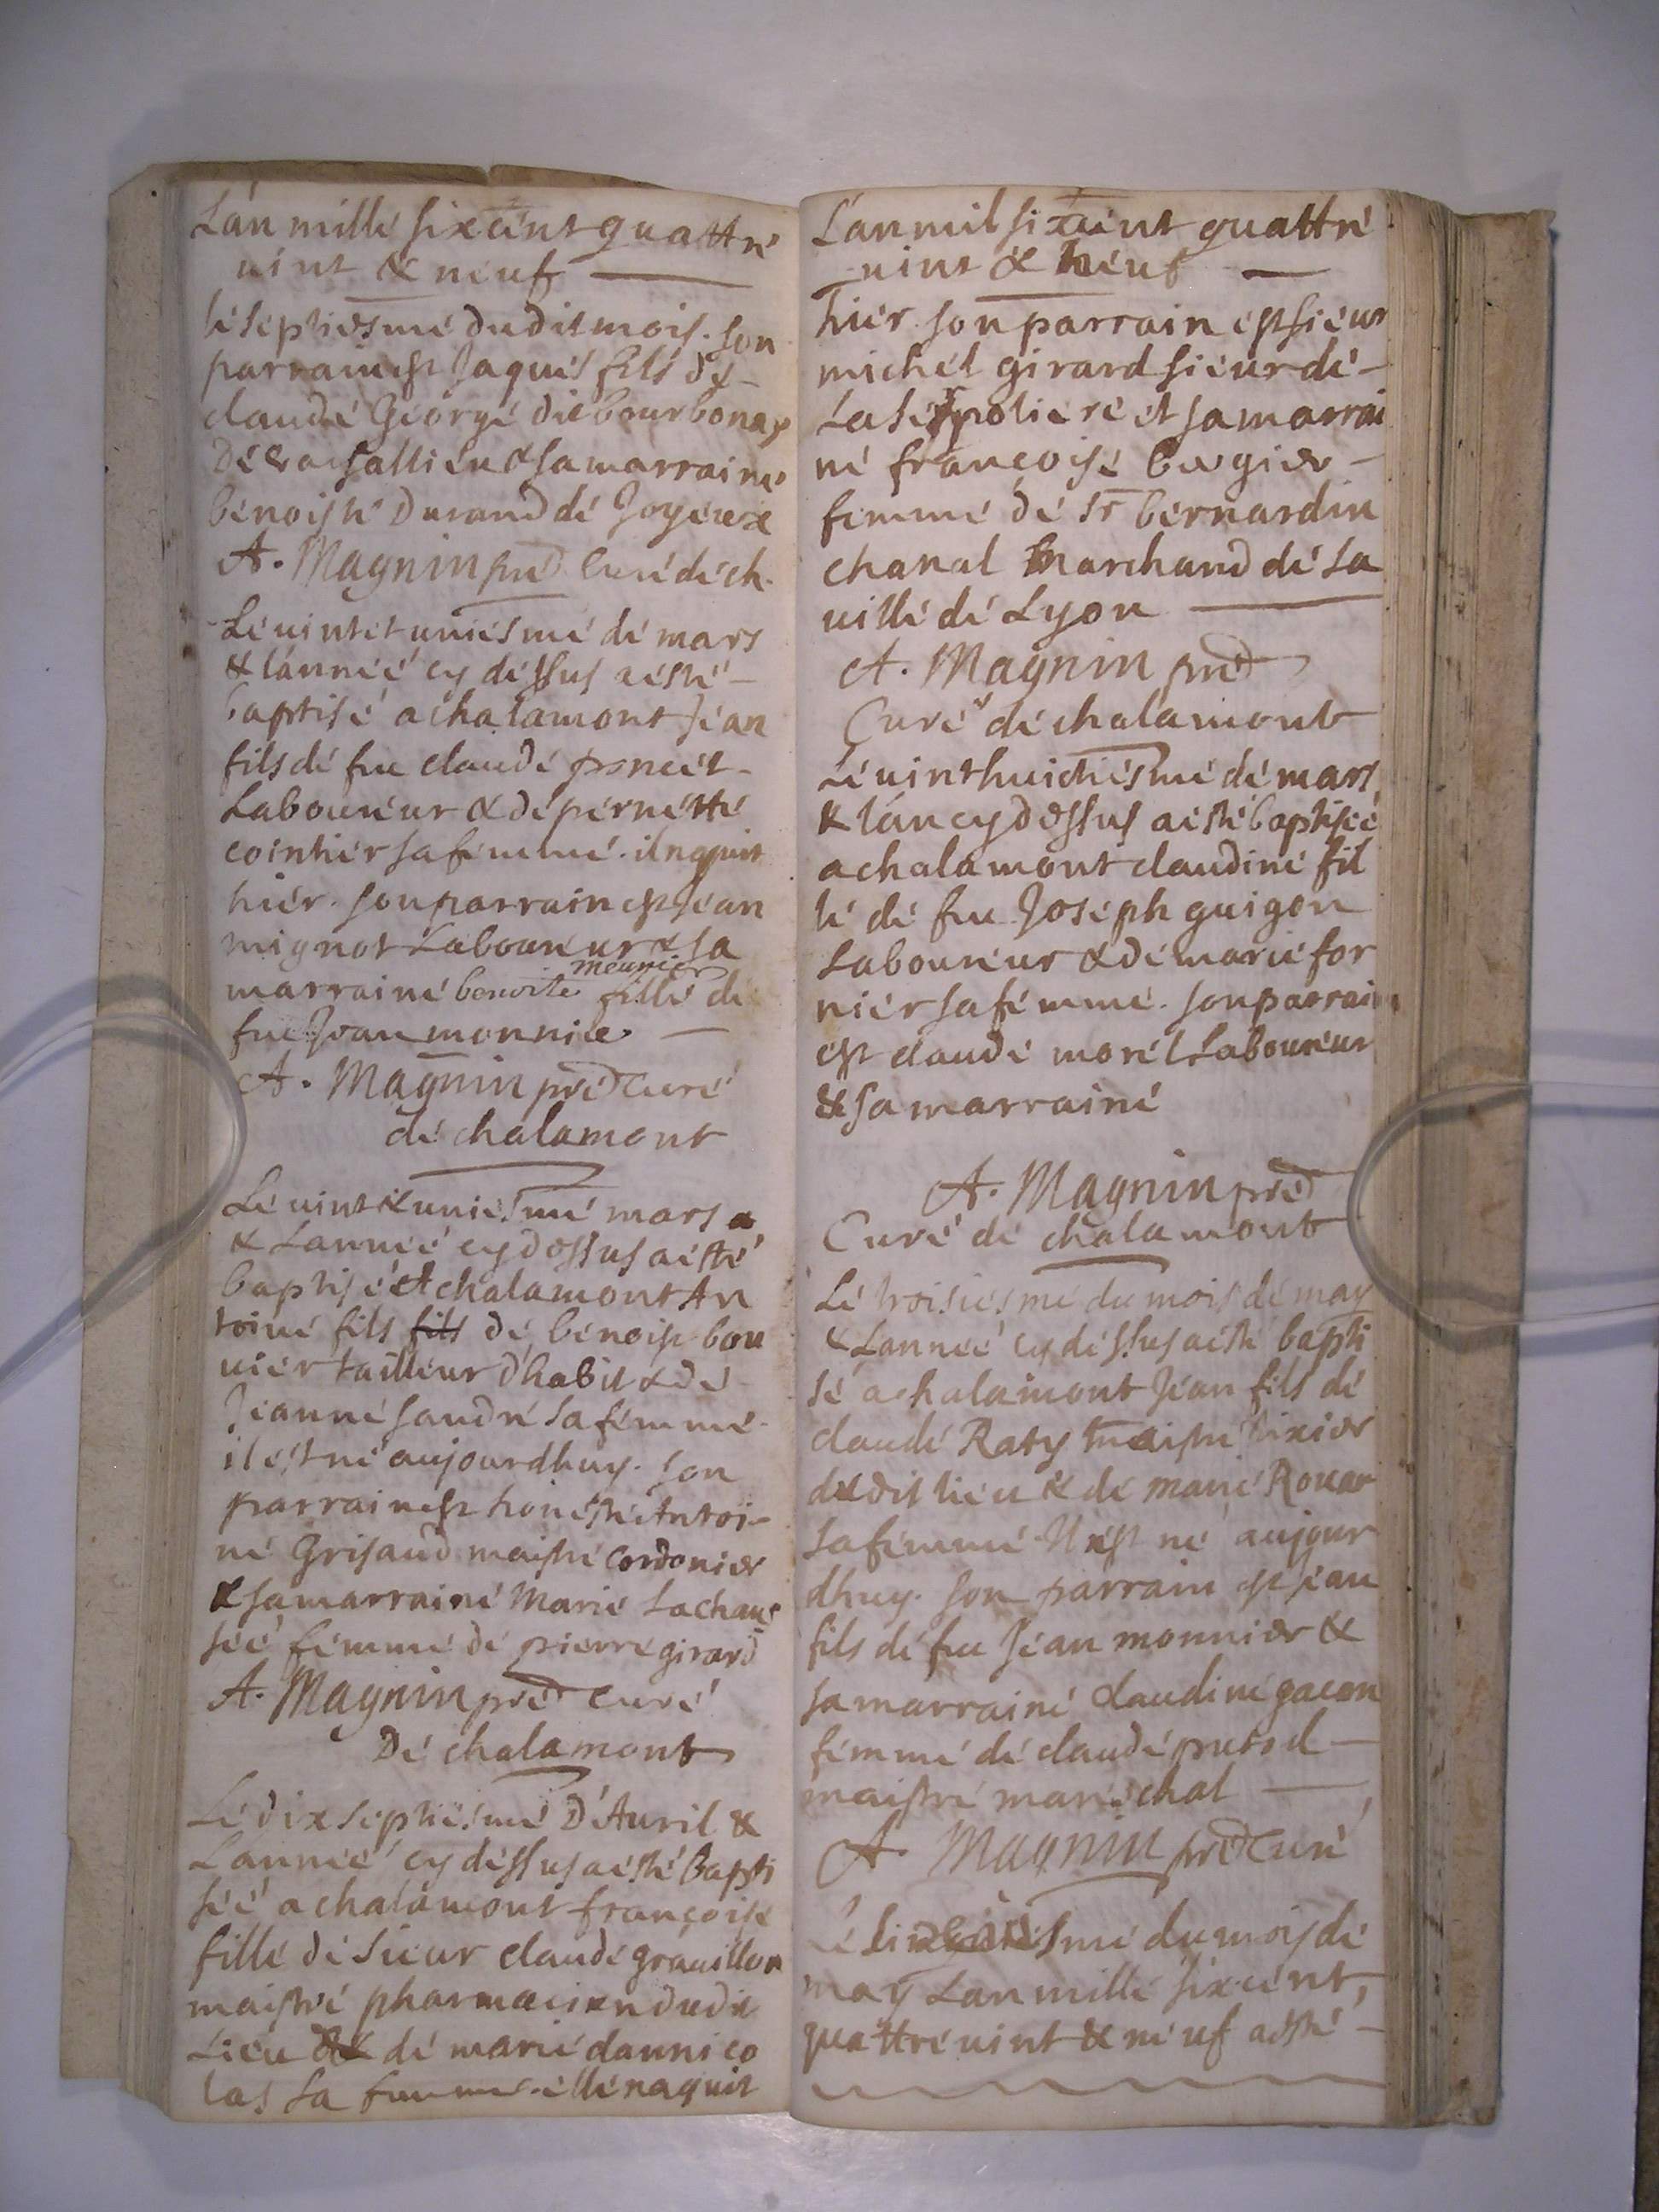 L'an mille sixcent quattre
vint & neuf
le septiesme dudit mois. son
parrain est Jaques fils de
claude George dit bourbonay
& sa marraine
benoiste Durand de Joyeux
A. Magnin pre Curé de ch.
Le vintet uniesme de mars
& lanneé cy dessus a esté
baptisé a chalamont Jean
fils de feu claude poncet
Laboureur & de pernette
cointier sa femme. il naquit
hier. son parrain est Jean
mignot Laboureur & sa
meunier
marraine benoite fille de
feu Jean monnier
A. Magnin pre Curé
de chalamont
Le vint & uniesme mars
& Lanneé cy dessus a esté
baptisé A chalamont An
toine fils fils de benoist bou
vier tailleur d'habit & de
Jeanne Sandre sa femme
il est né aujourdhuy. son
parrain est honeste Antoi-
ne Grisaud maistre Cordonier
& sa marraine Marie Lachaus
seé femme de pierre girard
A. Magnin pre Curé
De chalamont
Le dixseptiesme D'Avril &
L'anneé cy dessus a esté Bapti
seé a chalamont françoise
fille de Sieur claude gravillon
maistre pharmacien dudit
Lieu & de marie dannico
las sa femme. elle naquit
L'an mil sixcent quattre
vint & neuf
hier. son parrain est sieur
michel girard sieur de
La et sa marrai
ne françoise bergier
femme de Sr bernardin
chanal Marchand de La
ville de Lyon
A. Magnin pre
Curé de chalamont
Le vinthuictiesme de mars
& l'an cy dessus a esté baptiseé
a chalamont claudine fil
le de feu Joseph guigon
Laboureur & de marie for
nier sa femme. son parrain
est claude morel Laboureur
& sa marraine
A. Magnin pre
Curé de chalamont
Le troisiesme du mois de may
& Lanneé cy dessus a esté bapti
sé a chalamont Jean fils de
claude Raty maistre tixier
dudit lieu & de marie
sa femme. Il est né aujour
dhuy. son parrain est jean
fils de feu Jean monnier &
sa marraine claudine gacon
femme de claude
maistre marechal
A. Magnin pre Curé
Le du mois de
may Lan mille sixcent,
quattrevint & neuf a esté